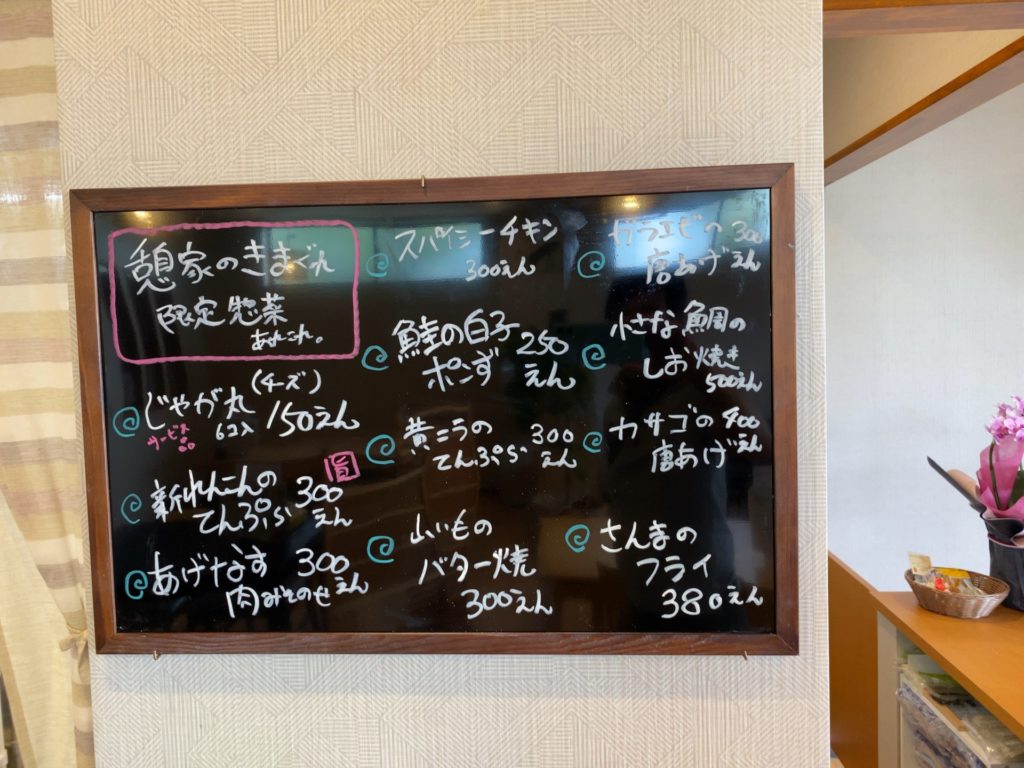 憩家のきまぐれ
限定惣菜
あれこれ。
じゃが丸(チーズ)
6コ入 150えん
サービス
新れんこんの 300
てんぷら えん
旨
あげなす 300
肉みそのせ えん
スパイシーチキン
300えん
鮭の白子 250
ポンず えん
黄ニラの 300
てんぷら えん
山いもの
バター焼
300えん
ガラエビの 300
唐あげ えん
小さな鯛の
しお焼き
500えん
カサゴの 400
唐あげ えん
さんまの
フライ
380えん